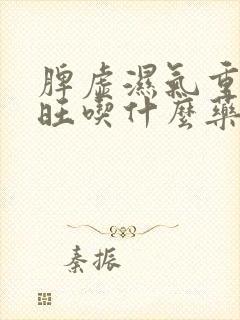 脾虛濕氣重
旺喫什麼藥
秦振